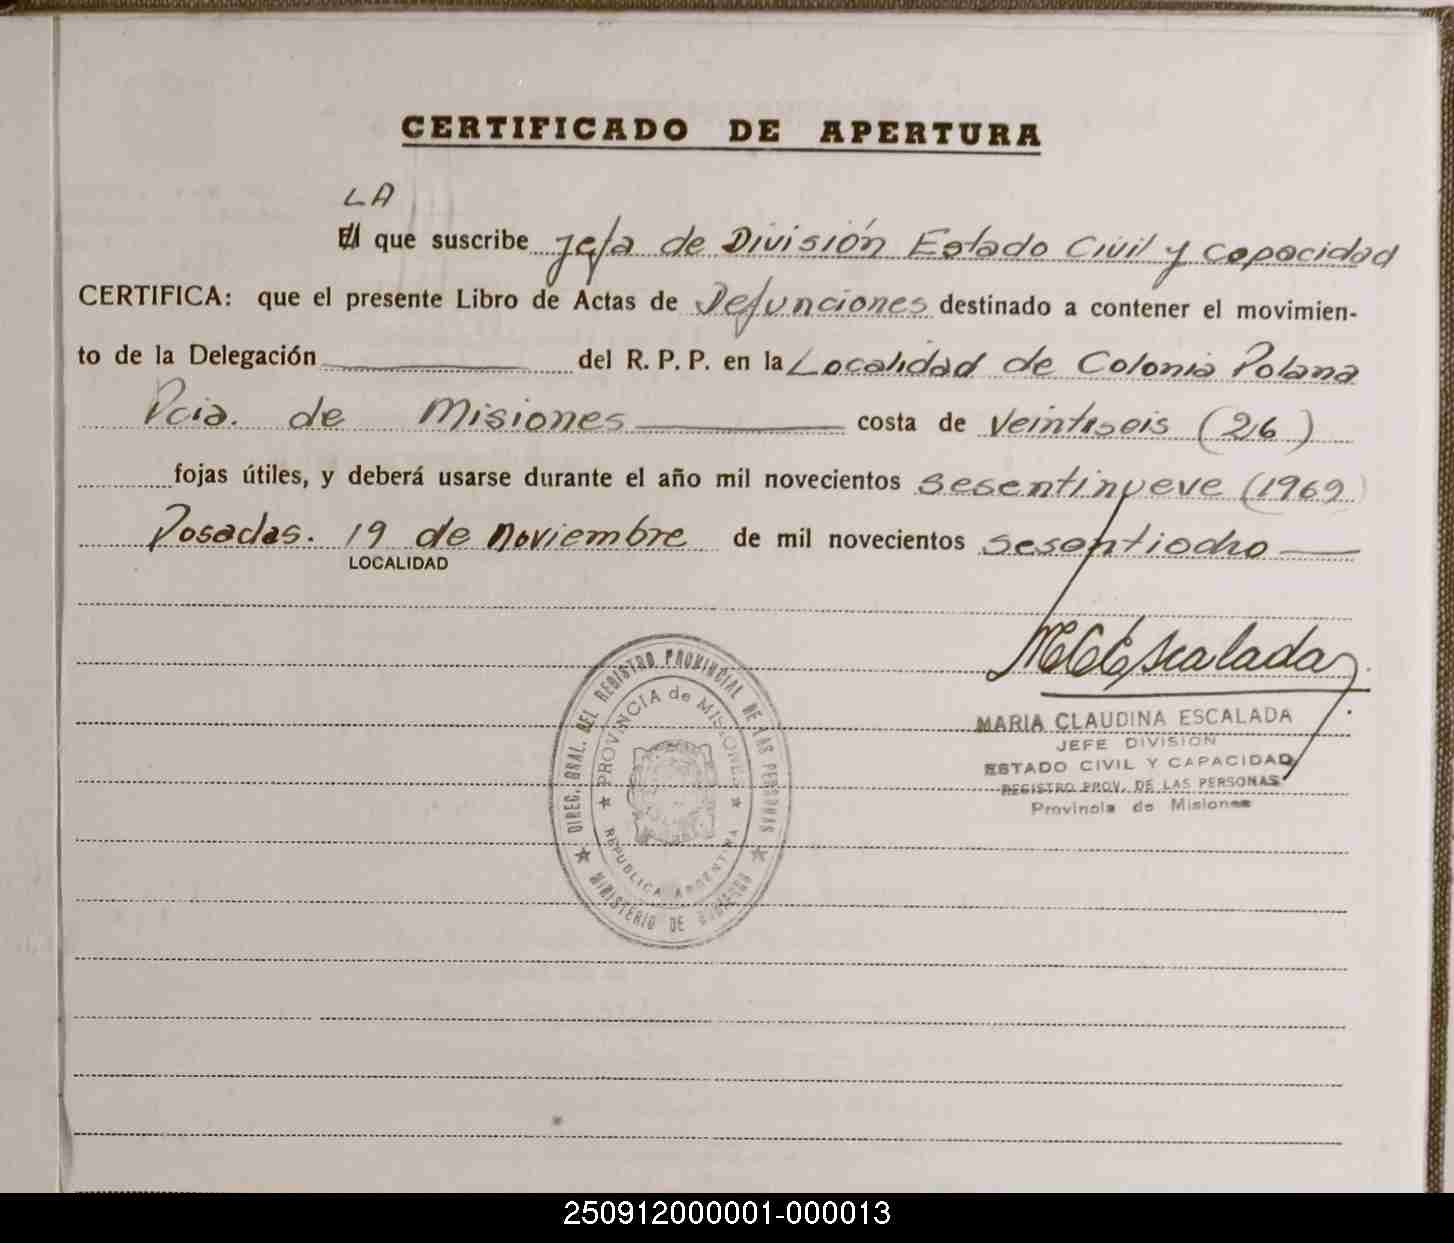 CERTIFICADO DE APERTURA
LA
El que suscribe Jefa de División Estado Civil y Capacidad
CERTIFICA: que el presente Libro de Actas de Defunciones destinado a contener el movimien-
to de la Delegación del R. P. P. en la Localidad de Colonia Polana
Pcia. de Misiones costa de veintiseis (26)
fojas útiles, y deberá usarse durante el año mil novecientos sesentinueve (1969)
Posadas. 19 de Noviembre de mil novecientos sesentiocho
LOCALIDAD
MCEscalada
MARIA CLAUDINA ESCALADA
JEFE DIVISION
ESTADO CIVIL Y CAPACIDAD
REGISTRO PROV. DE LAS PERSONAS
Provincia de Misiones
DIREC. GRAL. DEL REGISTRO PROVINCIAL DE LAS PERSONAS
PROVINCIA de MISIONES
REPUBLICA ARGENTINA
MINISTERIO DE GOBIERNO
250912000001-000013